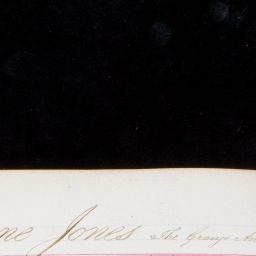 ne Jones The Grange No